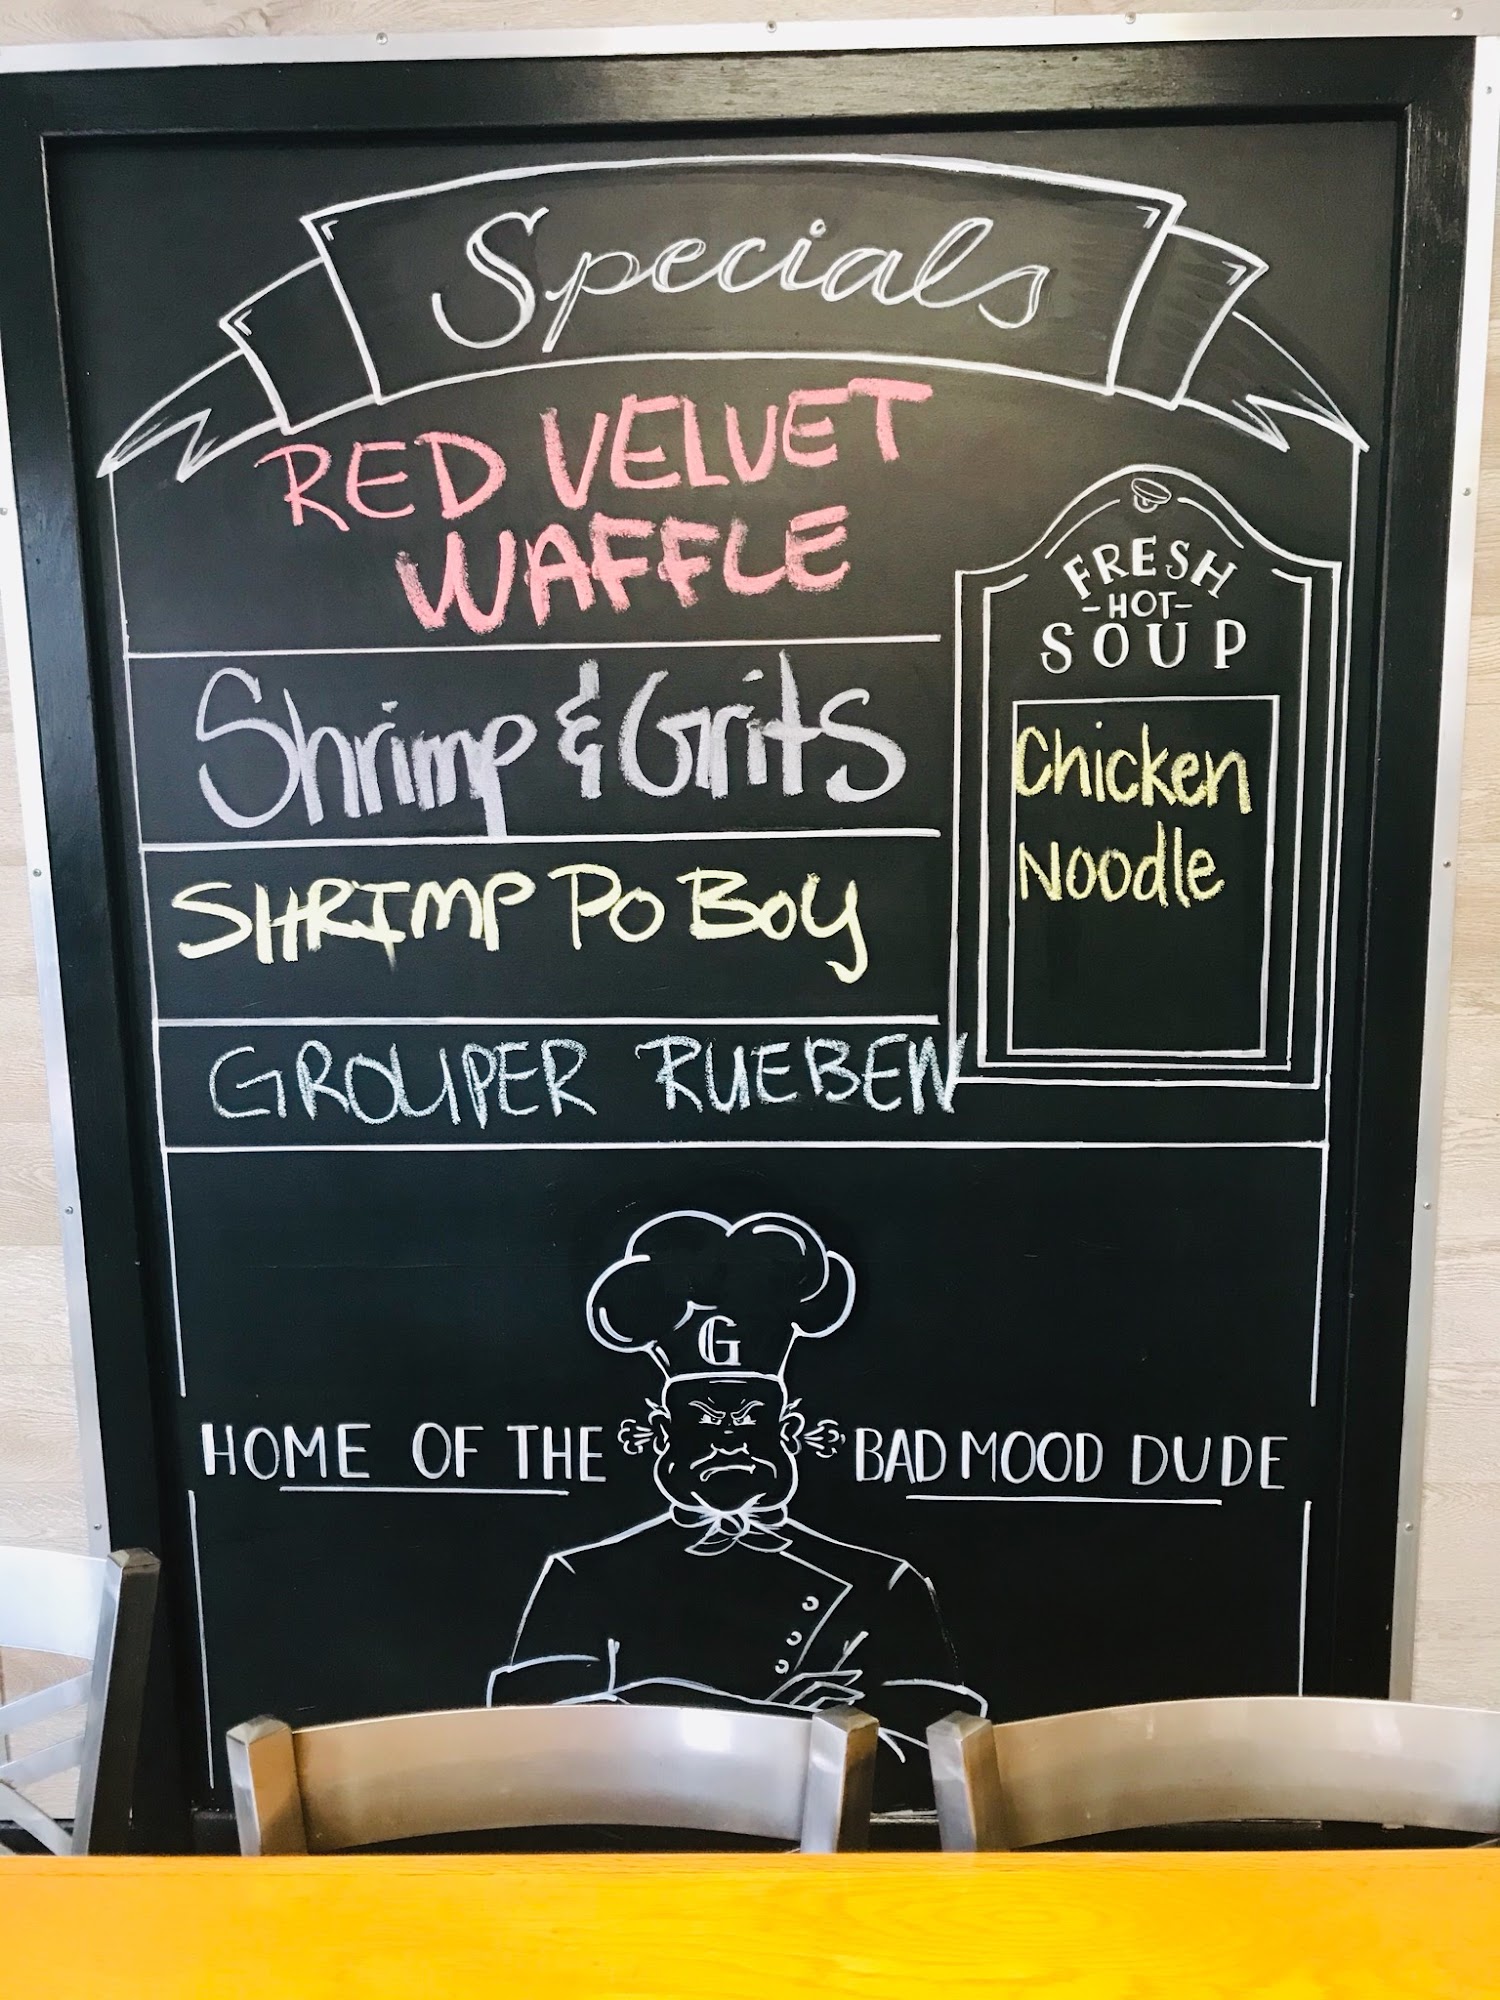 Specials
RED VELVET
WAFFLE
Shrimp & Grits
SHRIMP PO BOY
GROUPER RUEBEN
FRESH
-HOT-
SOUP
Chicken
Noodle
G
HOME OF THE BAD MOOD DUDE